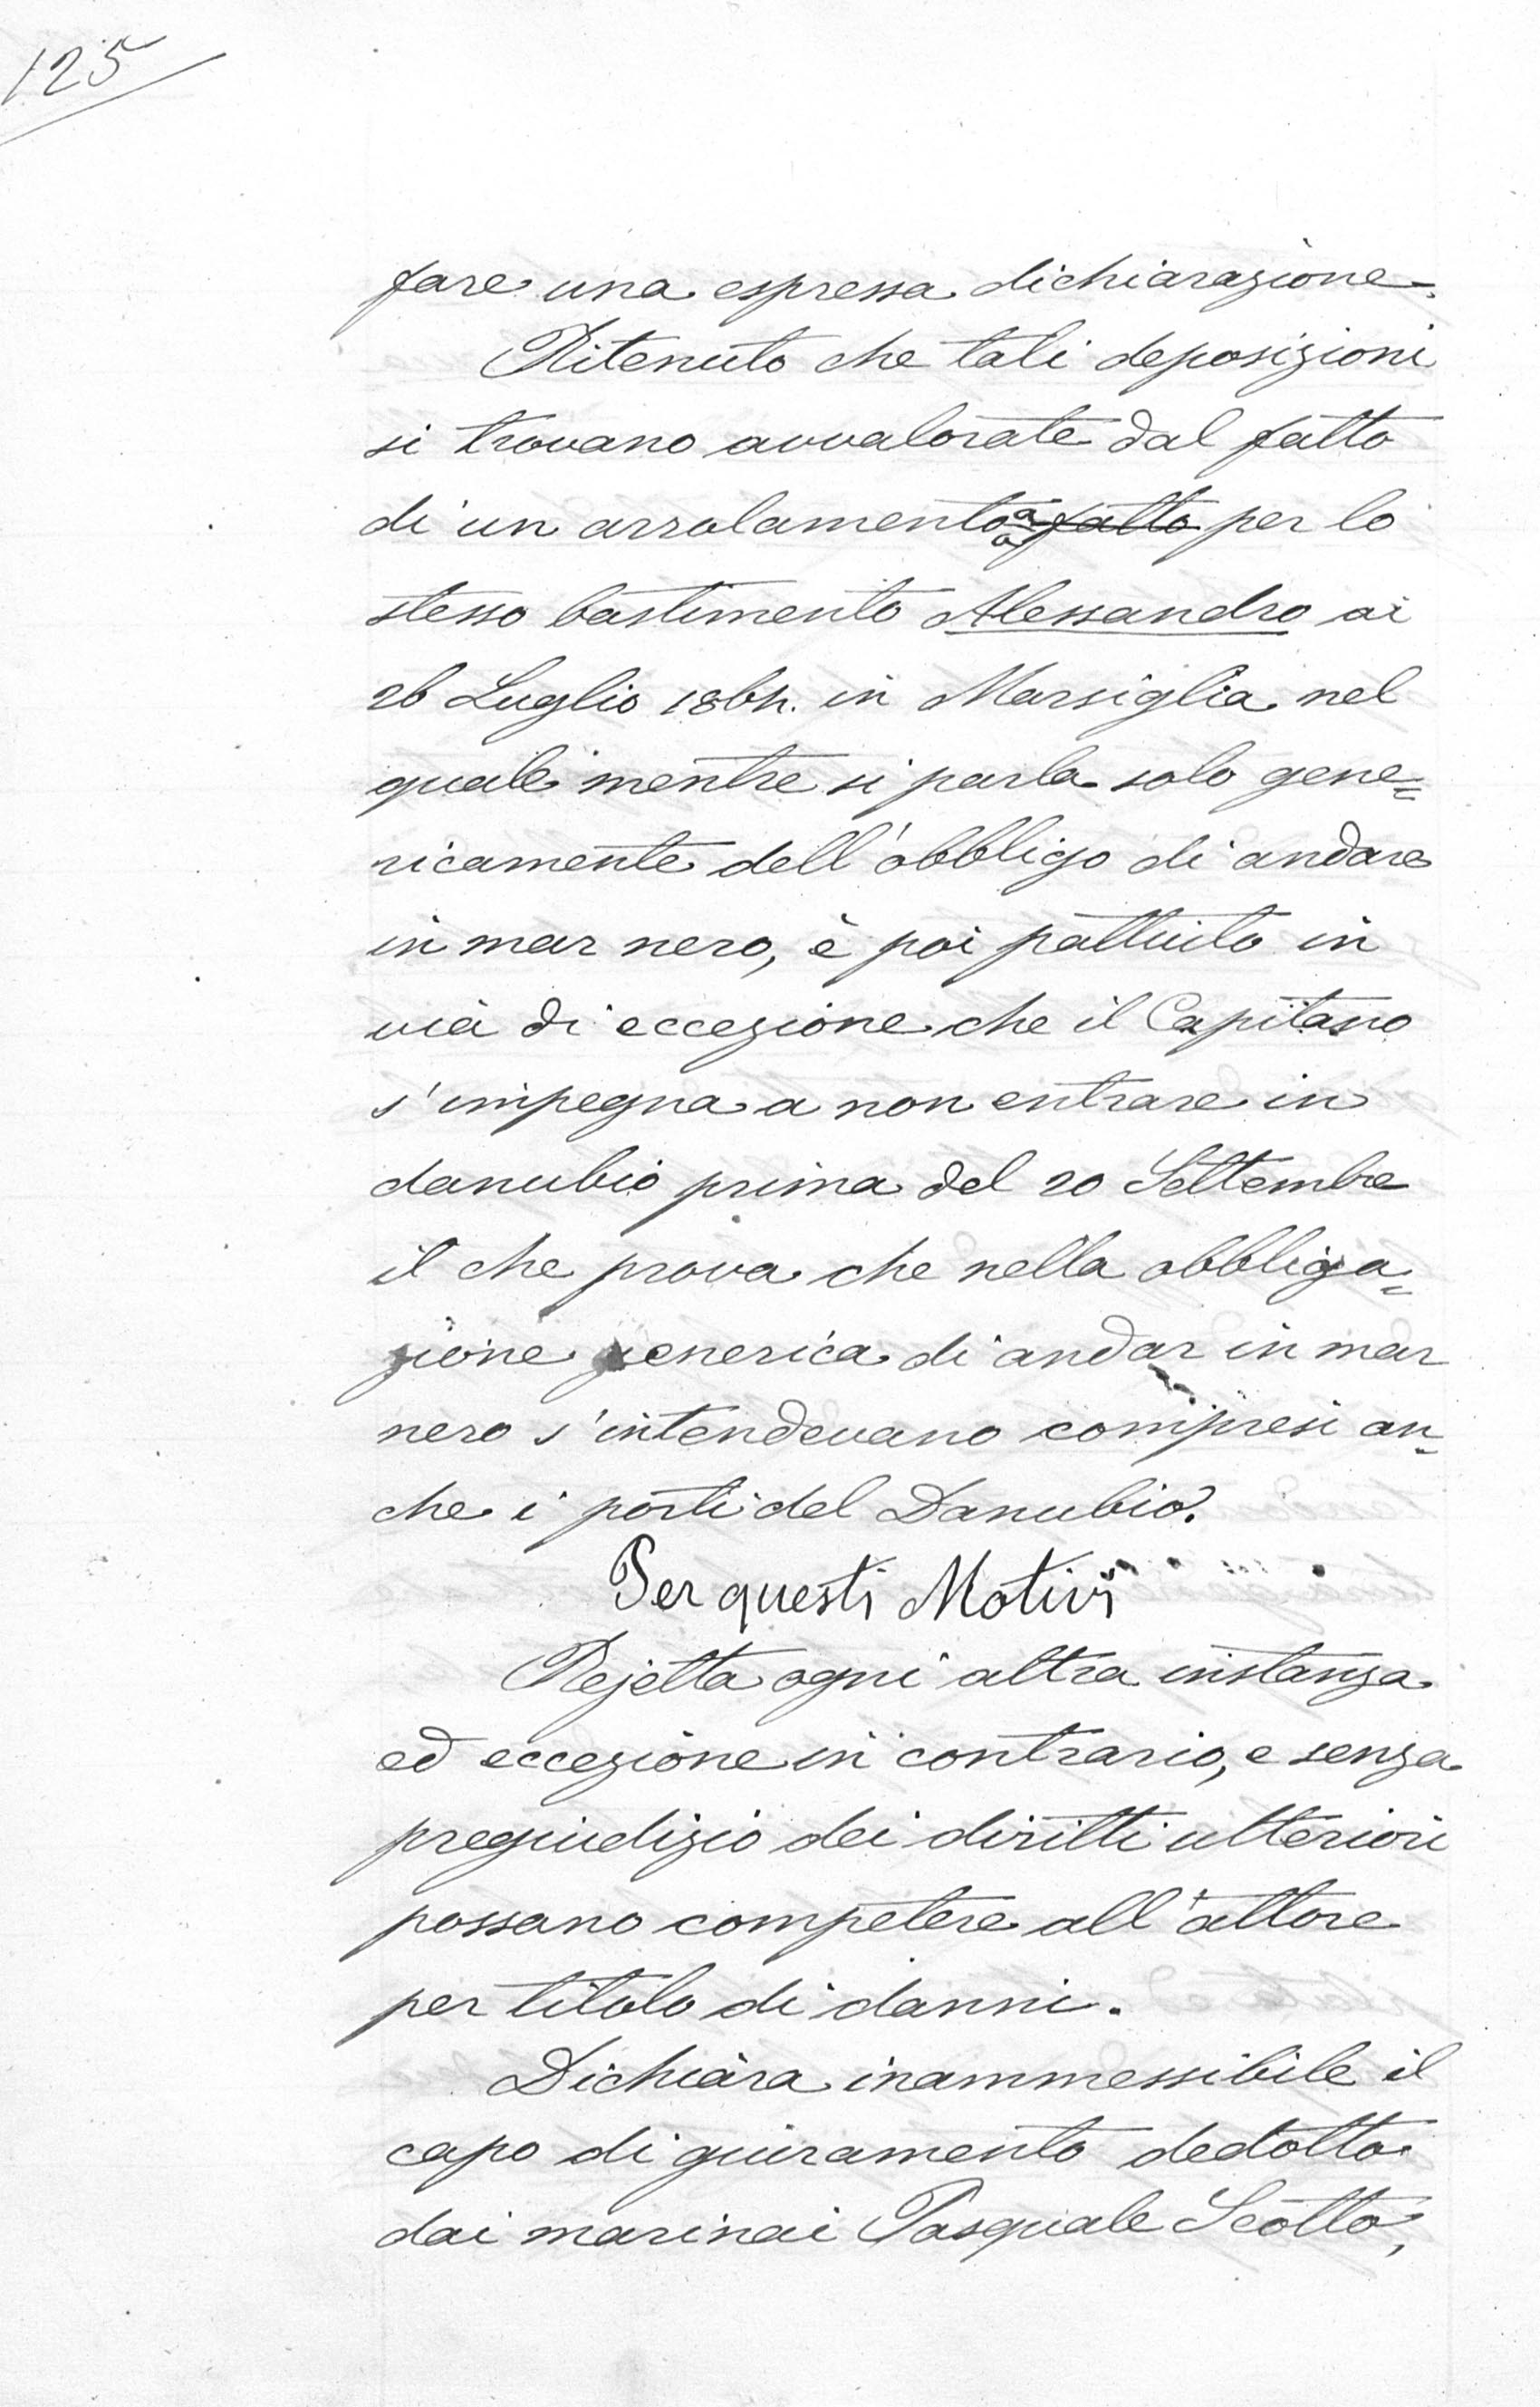 125
fare una espressa dichiarazione.
Ritenuto che tali deposizioni
si trovano avvalorate dal fatto
di un arrolamento fatto per lo
stesso bastimento Alessandro ai
26 Luglio 1864. in Marsiglia nel
quale mentre si parla solo gene=
ricamente dell'obbligo di andare
in mar nero, è poi pattuito in
via di eccezione che il Capitano
s'impegna a non entrare in
danubio prima del 20 Settembre
il che prova che nella obbliga=
zione generica di andar in mar
nero s'intendevano compresi an=
che i porti del Danubio.
Per questi Motivi
Rejetta ogni altra instanza
ed eccezione in contrario, e senza
pregiudizio dei diritti ulteriori
possano competere all'attore
per titolo di danni.
Dichiara inammessibile il
capo di giuramento dedotto
dai marinai Pasquale Scotto,